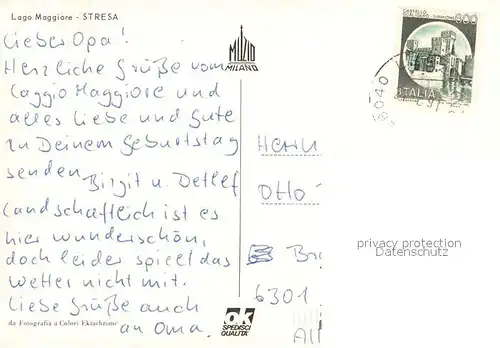 Lago Maggiore - STRESA
Lieber Opa!
Herzliche Grüße vom
Laggio Maggiore und
alles Liebe und Gute
zu Deinem Geburtstag
senden Birgit u. Detlef
Landschaftlich ist es
hier wunderschön,
doch leider spielt das
Wetter nicht mit.
Liebe Grüße auch
an Oma.
da Fotografia a Colori Ektachrome
MUZIO
MILANO
ok
SPEDISCI
QUALITÀ
600
ITALIA
Herrn
Otto
6301
privacy protection
Datenschutz